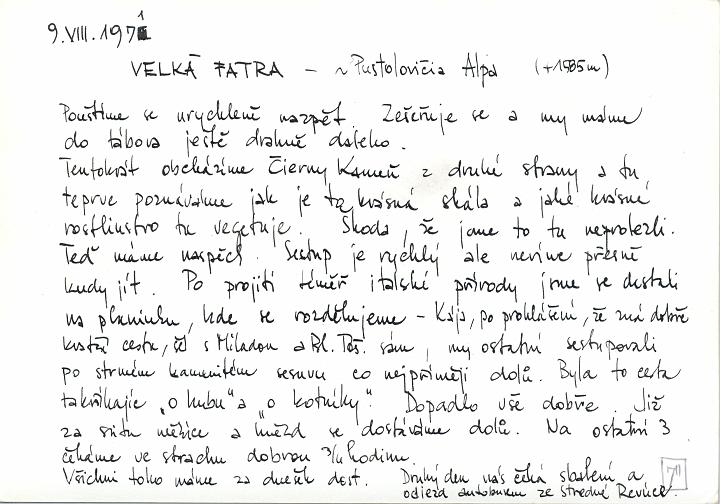 9. VIII. 1971
VELKÁ FATRA – ~ Pustolovičia Alpa (+1505m)
Pouštíme se urychleně nazpět. Zešeřuje se a my máme
do tábora ještě drahně daleko.
Tentokrát obcházíme Čierny Kameň z druhé strany a tu
teprve poznáváme jak je to krásná skála a jaké krásné
rostlinstvo tu vegetuje. Škoda, že jsme to tu neprolezli.
Teď máme naspěch. Sestup je rychlý ale nevíme přesně
kudy jít. Po projití téměř italské přírody jsme se dostali
na planinku, kde se rozdělujeme – Kája, po prohlášení, že zná dobře
kratší cestu, šel s Miladou a sám, my ostatní sestupovali
po strmém kamenitém sesuvu co nejpříměji dolů. Byla to cesta
takříkajíc „o hubu" a „o kotníky". Dopadlo vše dobře. Již
za svitu měsíce a hvězd se dostáváme dolů. Na ostatní 3
čekáme ve strachu dobrou 3/4 hodinu.
Všichni toho máme za dnešek dost. Druhý den nás čeká sbalení a
odjezd autobusem ze Stredné Revúce